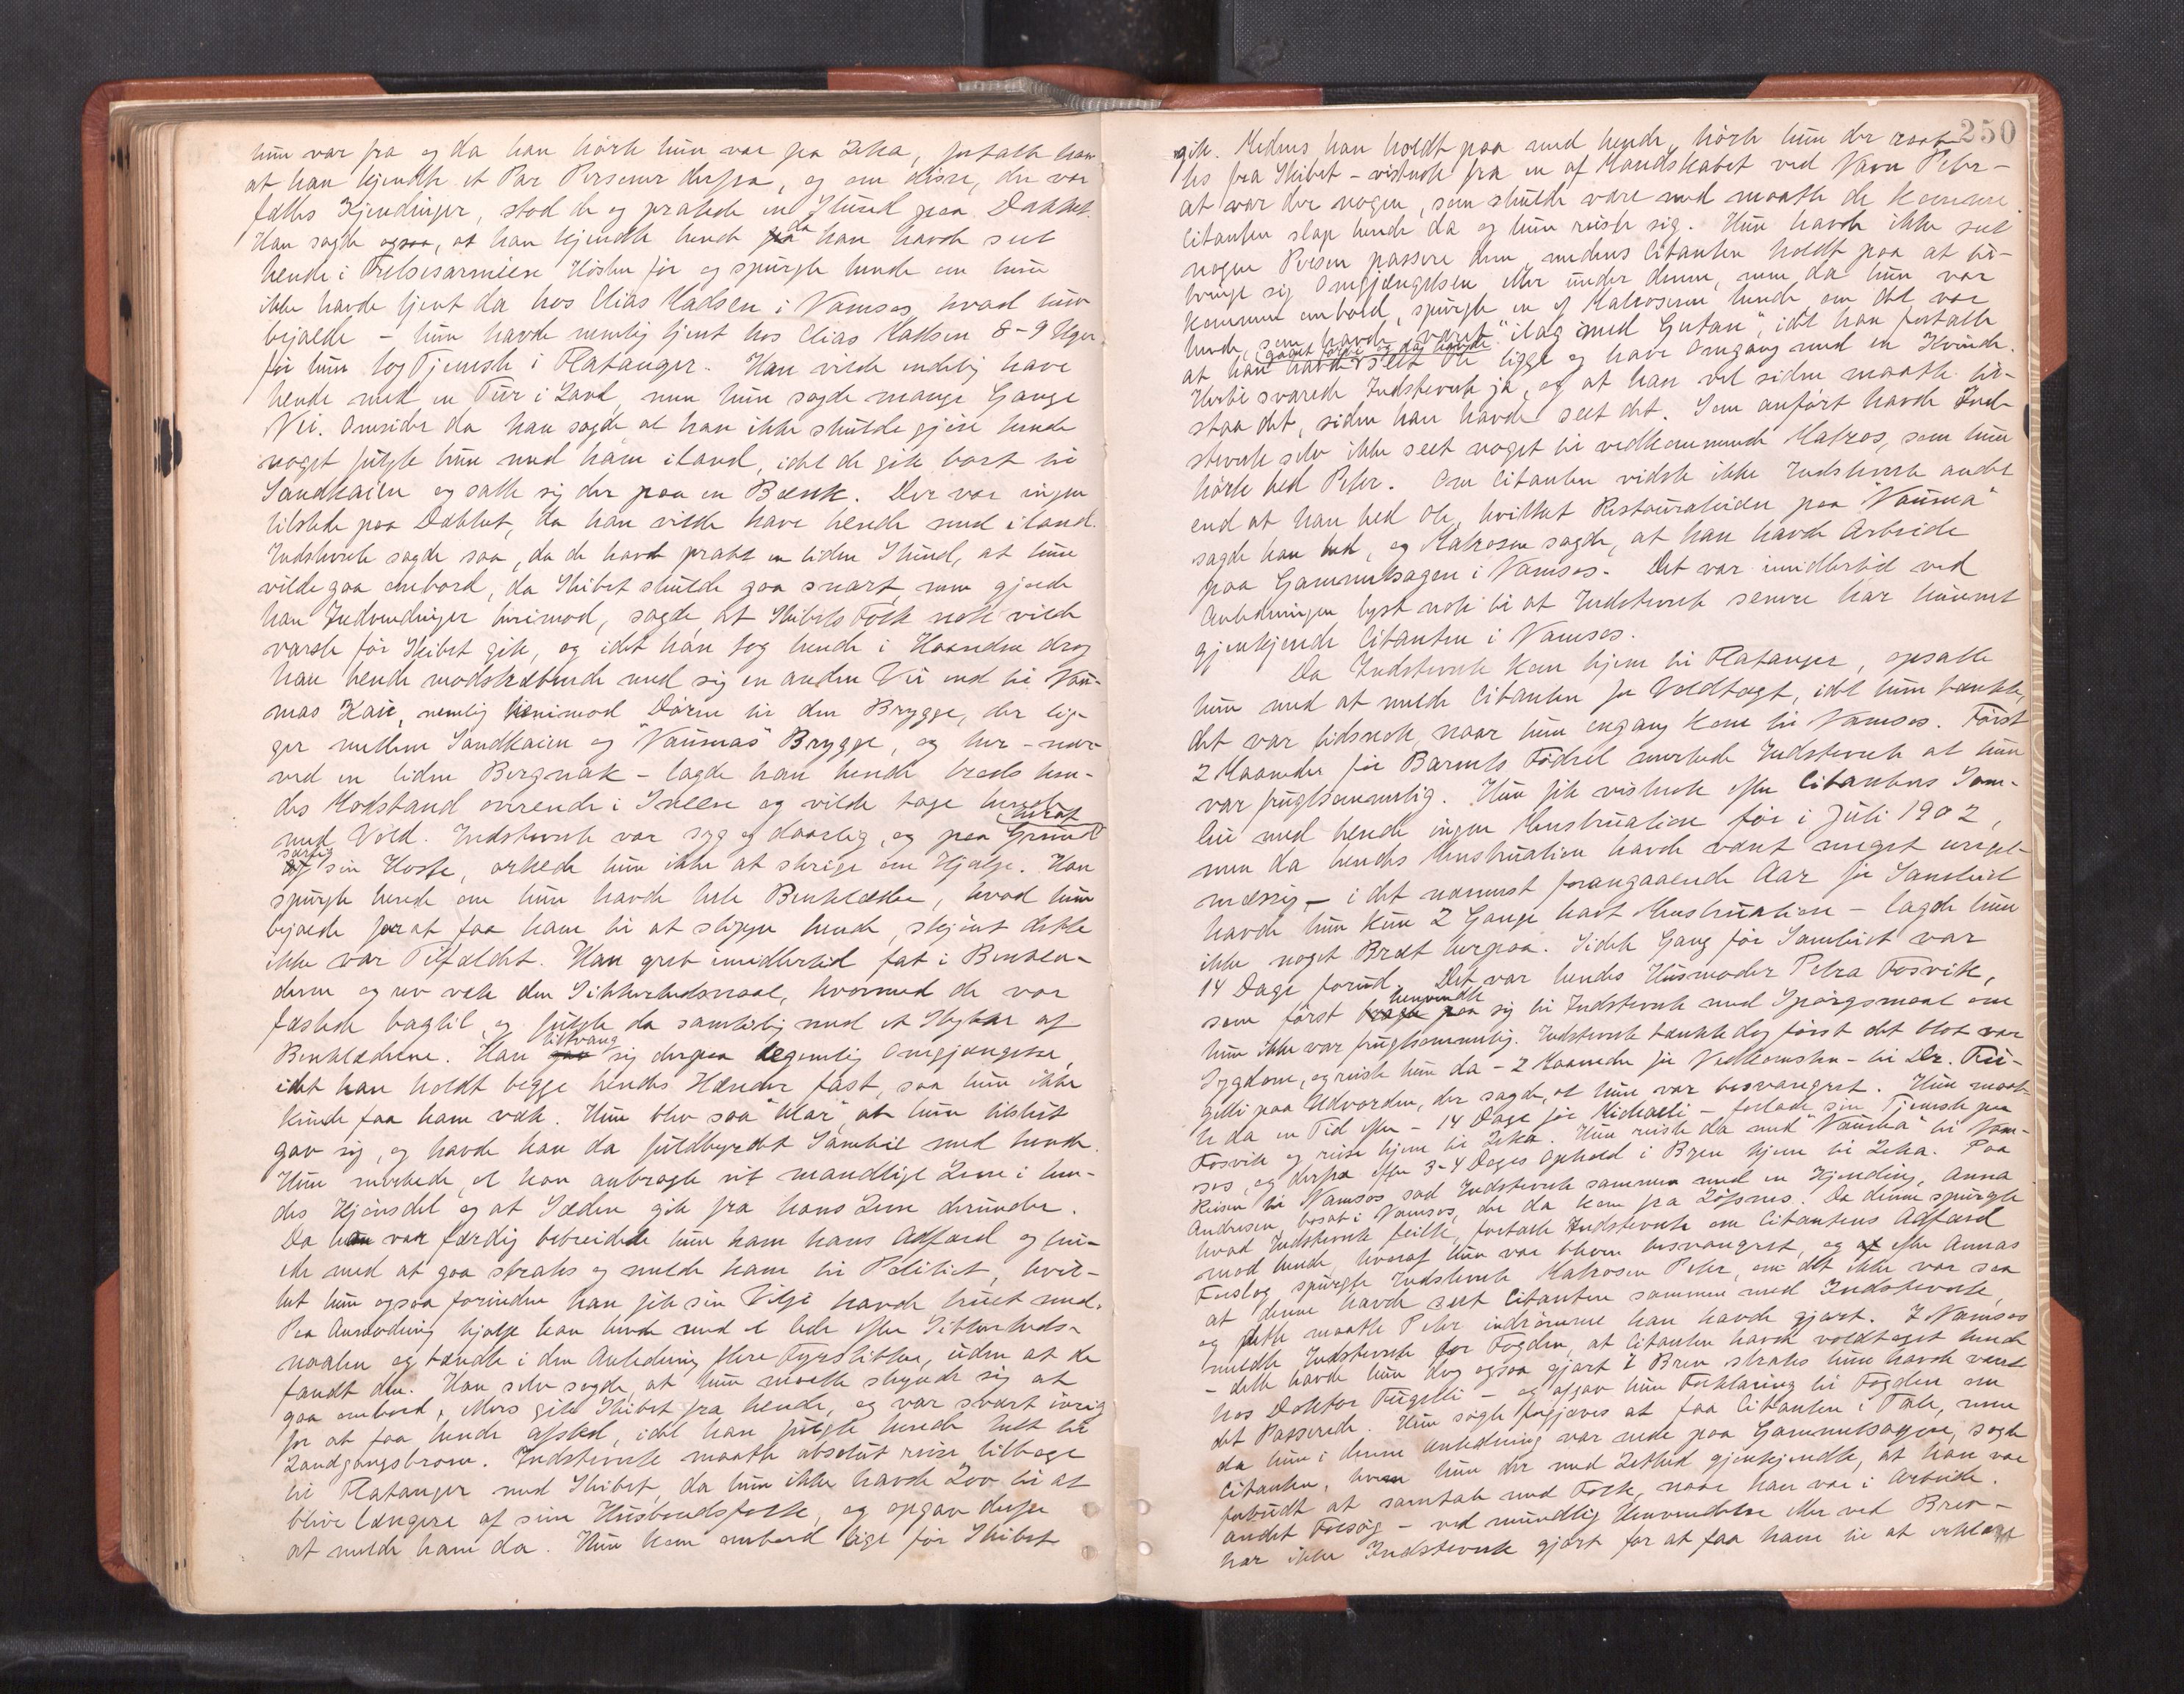 hun var fra og da han hørte hun var fra Leka, fortalte han
at han kjendte et Par Personer derfra, og om disse, der var
fælles Kjendinger, stod de og pratede en Stund paa Dækket.
Han sagde ogsaa, at han kjendte hende da han havde seet
hende i Frelsesarmeen Høsten før og spurgte hende om hun
ikke havde tjent da hos Elias Madsen i Namsos, hvad hun
bejaede – hun havde nemlig tjent hos Elias Madsen 8–9 Uger
før hun tog Tjeneste i Flatanger. Han vilde endelig have
hende med en Tur i Land, men hun sagde mange Gange
Nei. Omsider da han sagde at han ikke skulde gjøre hende
noget fulgte hun med ham iland, idet de gik bort til
Sandkaien og satte sig der paa en Bænk. Der var ingen
tilstede paa Dækket, da han vilde have hende med iland.
Indstevnte sagde saa, da de havde pratet en liden Stund, at hun
vilde gaa ombord, da Skibet skulde gaa snart, men gjorde
han Indvendinger herimod, sagde at Skibets Folk nok vilde
varsle før Skibet gik, og idet han tog hende i Haanden drog
han hende modstræbende med sig en anden Vei end til Nau-
mas Kai, nemlig henimod Døren til den Brygge, der lig-
ger mellem Sandkaien og "Naumas" Brygge, og her – nær
ved en liden Bergnak – lagde han hende trods hen-
des Modstand overende i Sneen og vilde tage hende
med Vold. Indstevnte var syg og daarlig, og paa Grund navnl
særlig af sin Hoste, orkede hun ikke at skrige om Hjælp. Han
spurgte hende om hun havde hele Benklæder, hvad hun
bejaede for at faa ham til at slippe hende, skjønt dette
ikke var Tilfældet. Han greb imidlertid fat i Benklæ-
derne og rev væk den Sikkerhedsnaal, hvormed de var
fæstede bagtil, og fulgte da samtidig med et Stykke af
Benklæderne. Han tiltvang sig derpaa legemlig Omgjængelse,
idet han holdt begge hendes Hænder fast, saa hun ikke
kunde faa ham væk. Hun blev saa "klar", at hun tilslut
gav sig, og havde han da fuldbyrdet Samleie med hende.
Hun mærkede, at han anbragte sit mandlige Lem i hen-
des Kjønsdel og at Sæden gik fra hans Lem derunder.
Da han var færdig bebreidede hun ham hans Adfærd og tru-
ede med at gaa straks og melde ham til Politiet, hvil-
ket hun ogsaa forinden han fik sin Vilje havde truet med.
Paa Anmodning hjalp han hende med at lede efter Sikkerheds-
naalen og tændte i den Anledning flere Fyrstikker, uden at de
fandt den. Han selv sagde, at hun maatte skynde sig at
gaa ombord, ellers gik Skibet fra hende, og var svært ivrig
for at faa hende afsted, idet han fulgte hende helt til
Landgangsbroen. Indstevnte maatte absolut reise tilbage
til Flatanger med Skibet, da hun ikke havde Lov til at
blive længere af sine Husbondsfolk, og opgav derfor
at melde ham da. Hun kom ombord lige før Skibet
250
gik. Medens han holdt paa med hende, hørte hun der raab-
tes fra Skibet – vistnok fra en af Mandskabet ved Navn Peter –
at var der nogen, som skulde være med maatte de komme.
Citanten slap hende da og hun reiste sig. Hun havde ikke seet
nogen Person passere dem, medens Citanten holdt paa at til-
tvinge sig Omgjængelsen eller under denne, men da hun var
kommen ombord, spurgte en af Matroserne hende, om det var
hende, som havde været "ilag med Gutan", idet han fortalte
at han havde gaaet forbi og da havde seet Ole ligge og have Omgang med en Kvinde.
Hertil svarede Indstevnte ja, og at han vel siden maatte til-
staa det, siden han havde seet det. Som anført havde Ind-
stevnte selv ikke seet noget til vedkommende Matros, som hun
hørte hed Peter. Om Citanten vidste ikke Indstevnte andet
end at han hed Ole, hvilket Restauratricen paa "Nauma"
sagde han hed, og Matrosen sagde, at han havde Arbeide
paa Gammelsagen i Namsos. Det var imidlertid ved
Anledningen lyst nok til at Indstevnte senere har kunnet
gjenkjende Citanten i Namsos.
Da Indstevnte kom hjem til Flatanger, opsatte
hun med at melde Citanten for Voldtægt, idet hun tænkte,
det var tidsnok, naar hun engang kom til Namsos. Først
2 Maaneder før Barnets Fødsel mærkede Indstevnte at hun
var frugtsommelig. Hun fik vistnok efter Citantens Sam-
leie med hende ingen Menstruation før i Juli 1902,
men da hendes Menstruation havde været meget uregel-
mæssig – i det nærmest forangaaende Aar før Samleiet
havde hun kun 2 Gange havt Menstruation – lagde hun
ikke noget Bræt herpaa. Sidste Gang før Samleiet var
14 Dage forud. Det var hendes Husmoder Petra Fosvik,
som først henvendte sig til Indstevnte med Spørgsmaal om
hun ikke var frugtsommelig. Indstevnte tænkte dog først det blot var
Sygdom, og reiste hun da – 2 Maaneder før Nedkomsten – til Dr. Fü-
gelli paa Utvorden, der sagde, at hun var besvangret. Hun maat-
te da en Tid efter – 14 Dage før Michaeli – forlade sin Tjeneste paa
Fosvik og reise hjem til Leka. Hun reiste da med "Nauma" til Nam-
sos, og derfra efter 3–4 Dages Ophold i Byen hjem til Leka. Paa
Reisen til Namsos sad Indstevnte sammen med en Kjending, Anna
Andresen, bosat i Namsos, der da kom fra Løvsnes. Da denne spurgte
hvad Indstevnte feilte, fortalte Indstevnte om Citantens Adfærd
mod hende, hvoraf hun var bleven besvangret, og efter Annas
Forslag spurgte Indstevnte Matrosen Peter, om det ikke var saa
at denne havde seet Citanten sammen med Indstevnte,
og dette maatte Peter indrømme han havde gjort. I Namsos
meldte Indstevnte for Fogden, at Citanten havde voldtaget hende
– dette havde hun dog ogsaa gjort i Brev straks hun havde været
hos Doktor Fügelli – og afgav hun Forklaring til Fogden om
det Passerede. Hun søgte forgjæves at faa Citanten i Tale, men
da hun i denne Anledning var nede paa Gammelsagen, sagde
Citanten, hvem hun der med Lethed gjenkjendte, at han var
forbudt at samtale med Folk, naar han var i Arbeide.
andet Forsøg – ved mundtlig Henvendelse eller ved Brev –
har ikke Indstevnte gjort for at faa ham til at erklært